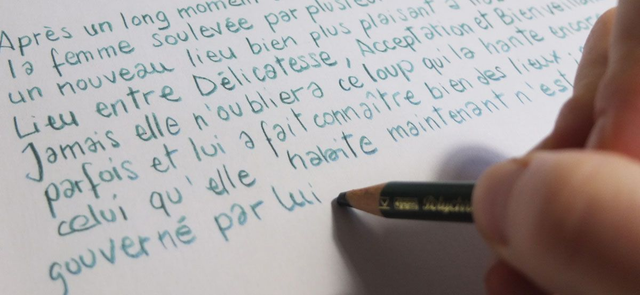 Après un long moment
la femme soulevée par
un nouveau lieu bien plus plaisant à
Lieu entre Délicatesse, Acceptation et Bienveillan
Jamais elle n'oubliera ce loup qui la hante encore
parfois et lui a fait connaître bien des lieux
celui qu'elle habite maintenant n'est
gouverné par lui